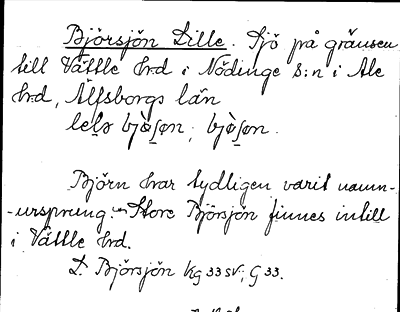 Björsjön Lille. Sjö på gränsen
till Vättle hrd i Nödinge s:n i Ale
hrd, Älfsborgs län
lelə bjø̀ʃøn, bjø̀ʃøn.
Björn har tydligen varit namn-
-ursprung. Store Björsjön finnes intill
i Vättle hrd.
L. Björsjön Kg 33 sv; G 33.